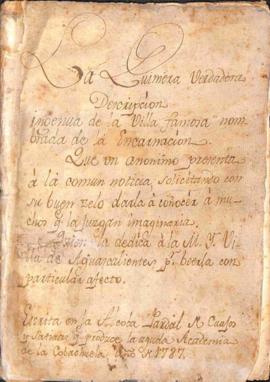 La Quimera Verdadera
Descripcion
ingenua de la Villa famosa nom
brada de la Encarnacion
Que un anonimo presenta
à la comun noticia, solicitando con
su buen zelo darla à conocer a mu
chos q. la juzgan imaginaria.
la dedica à la M. Y. Vi
lla de Aguascalientes pr. berla con
particular afecto.
Escrita en la
y q. produce la aguda Academia
de la Cobachuela Año de 1787.